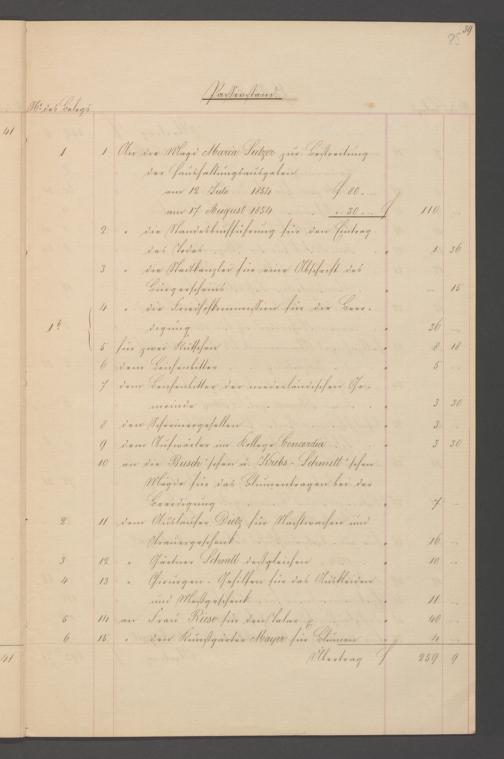 39
85
Passivstand.
No des Belegs.
41
1 1 An die Magd Maria Seitzer zur Bestreitung
der Haushaltungsausgaben
am 12 Juli 1854 f 80. --
am 17 August 1854 " 30. -- f 110 --
2 " die Standesbuchführung für den Eintrag
des Todes " 1 36
3 " die Stadtkanzlei für eine Abschrift des
Bürgerscheins " -- 15
4 " die Friedhofkommission für die Beer-
1b digung " 26 --
5 für zwei Kutschen " 8 18
6 dem Leichenbitter " 5 --
7 dem Leichenbitter der niederländischen Ge-
meinde " 3 30
8 den Schreinergesellen " 3 --
9 dem Aufwärter im Kollege Concordia " 3 30
10 an die Busch'schen u. Krebs-Schmitt'schen
Mägde für das Blumentragen bei der
Beerdigung " 7 --
2 11 dem Ausläufer Dietz für Nachtwachen und
Trauergeschenk " 16 --
3 12 " Gärtner Schmitt desgleichen " 10 --
4 13 " Chirurgen-Gehilfen für das Auskleiden
und Meßgeschenk " 11 --
5 14 an Frau Riese für den Salar " 40 --
6 15 " den Kunstgärtner Mayer für Blumen " 4 --
41 Übertrag f 259 9